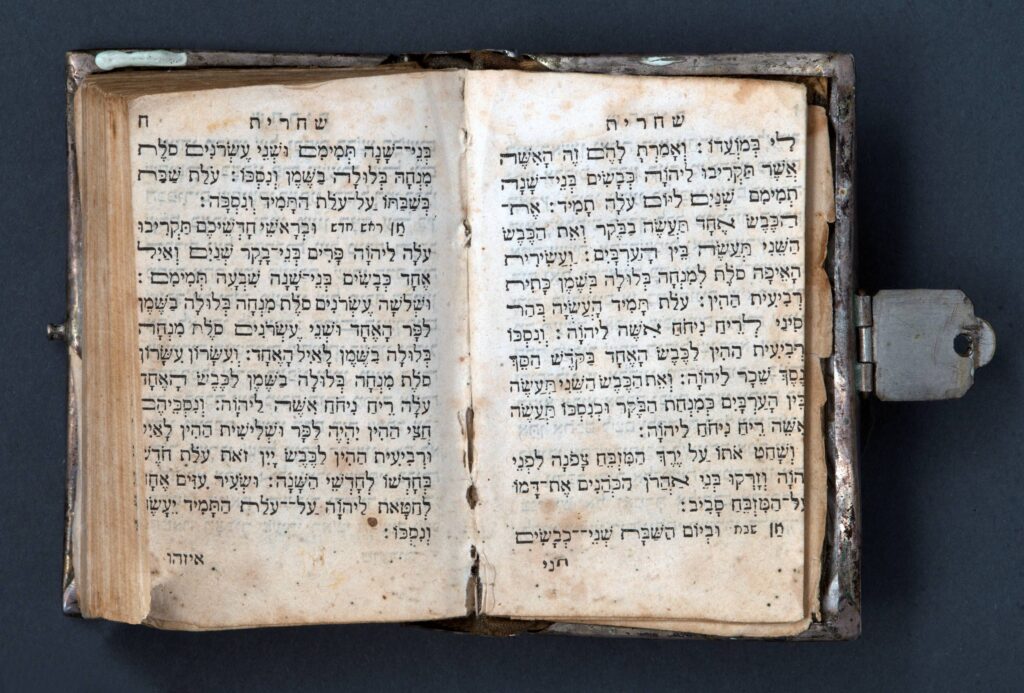 שחרית
לִי בְּמוֹעֲדוֹ: וְאָמַרְתָּ לָהֶם זֶה הָאִשֶּׁה
אֲשֶׁר תַּקְרִיבוּ לַיהוָֹה כְּבָשִׂים בְּנֵי־שָׁנָה
תְמִימִם שְׁנַיִם לַיּוֹם עֹלָה תָמִיד: אֶת
הַכֶּבֶשׂ אֶחָד תַּעֲשֶׂה בַבֹּקֶר וְאֵת הַכֶּבֶשׂ
הַשֵּׁנִי תַּעֲשֶׂה בֵּין הָעַרְבָּיִם: וַעֲשִׂירִית
הָאֵיפָה סֹלֶת לְמִנְחָה בְּלוּלָה בְּשֶׁמֶן כָּתִית
רְבִיעִית הַהִין: עֹלַת תָּמִיד הָעֲשֻׂיָה בְּהַר
סִינַי לְרֵיחַ נִיחֹחַ אִשֶּׁה לַיהוָֹה: וְנִסְכּוֹ
רְבִיעִית הַהִין לַכֶּבֶשׂ הָאֶחָד בַּקֹּדֶשׁ הַסֵּךְ
נֶסֶךְ שֵׁכָר לַיהוָֹה: וְאֵת הַכֶּבֶשׂ הַשֵּׁנִי תַּעֲשֶׂה
בֵּין הָעַרְבָּיִם כְּמִנְחַת הַבֹּקֶר וּכְנִסְכּוֹ תַּעֲשֶׂה
אִשֵּׁה רֵיחַ נִיחֹחַ לַיהוָֹה:
וְשָׁחַט אֹתוֹ עַל יֶרֶךְ הַמִּזְבֵּחַ צָפֹנָה לִפְנֵי
יְהוָֹה וְזָרְקוּ בְּנֵי אַהֲרֹן הַכֹּהֲנִים אֶת־דָּמוֹ
עַל־הַמִּזְבֵּחַ סָבִיב:
חַן שבת וּבְיוֹם הַשַּׁבָּת שְׁנֵי־כְבָשִׂים
בני
שחרית ח
בְּנֵי־שָׁנָה תְּמִימִם וּשְׁנֵי עֶשְׂרֹנִים סֹלֶת
מִנְחָה בְּלוּלָה בַשֶּׁמֶן וְנִסְכּוֹ: עֹלַת שַׁבַּת
בְּשַׁבַּתּוֹ עַל־עֹלַת הַתָּמִיד וְנִסְכָּהּ:
חַן ראש חדש וּבְרָאשֵׁי חָדְשֵׁיכֶם תַּקְרִיבוּ
עֹלָה לַיהוָֹה פָּרִים בְּנֵי־בָקָר שְׁנַיִם וְאַיִל
אֶחָד כְּבָשִׂים בְּנֵי־שָׁנָה שִׁבְעָה תְּמִימִם:
וּשְׁלֹשָׁה עֶשְׂרֹנִים סֹלֶת מִנְחָה בְּלוּלָה בַשֶּׁמֶן
לַפָּר הָאֶחָד וּשְׁנֵי עֶשְׂרֹנִים סֹלֶת מִנְחָה
בְּלוּלָה בַשֶּׁמֶן לָאַיִל הָאֶחָד: וְעִשָּׂרוֹן עִשָּׂרוֹן
סֹלֶת מִנְחָה בְּלוּלָה בַשֶּׁמֶן לַכֶּבֶשׂ הָאֶחָד
עֹלָה רֵיחַ נִיחֹחַ אִשֶּׁה לַיהוָֹה: וְנִסְכֵּיהֶם
חֲצִי הַהִין יִהְיֶה לַפָּר וּשְׁלִישִׁית הַהִין לָאַיִל
וּרְבִיעִית הַהִין לַכֶּבֶשׂ יָיִן זֹאת עֹלַת חֹדֶשׁ
בְּחָדְשׁוֹ לְחָדְשֵׁי הַשָּׁנָה: וּשְׂעִיר עִזִּים אֶחָד
לְחַטָּאת לַיהוָֹה עַל־עֹלַת הַתָּמִיד יֵעָשֶׂה
וְנִסְכּוֹ:
איזהו